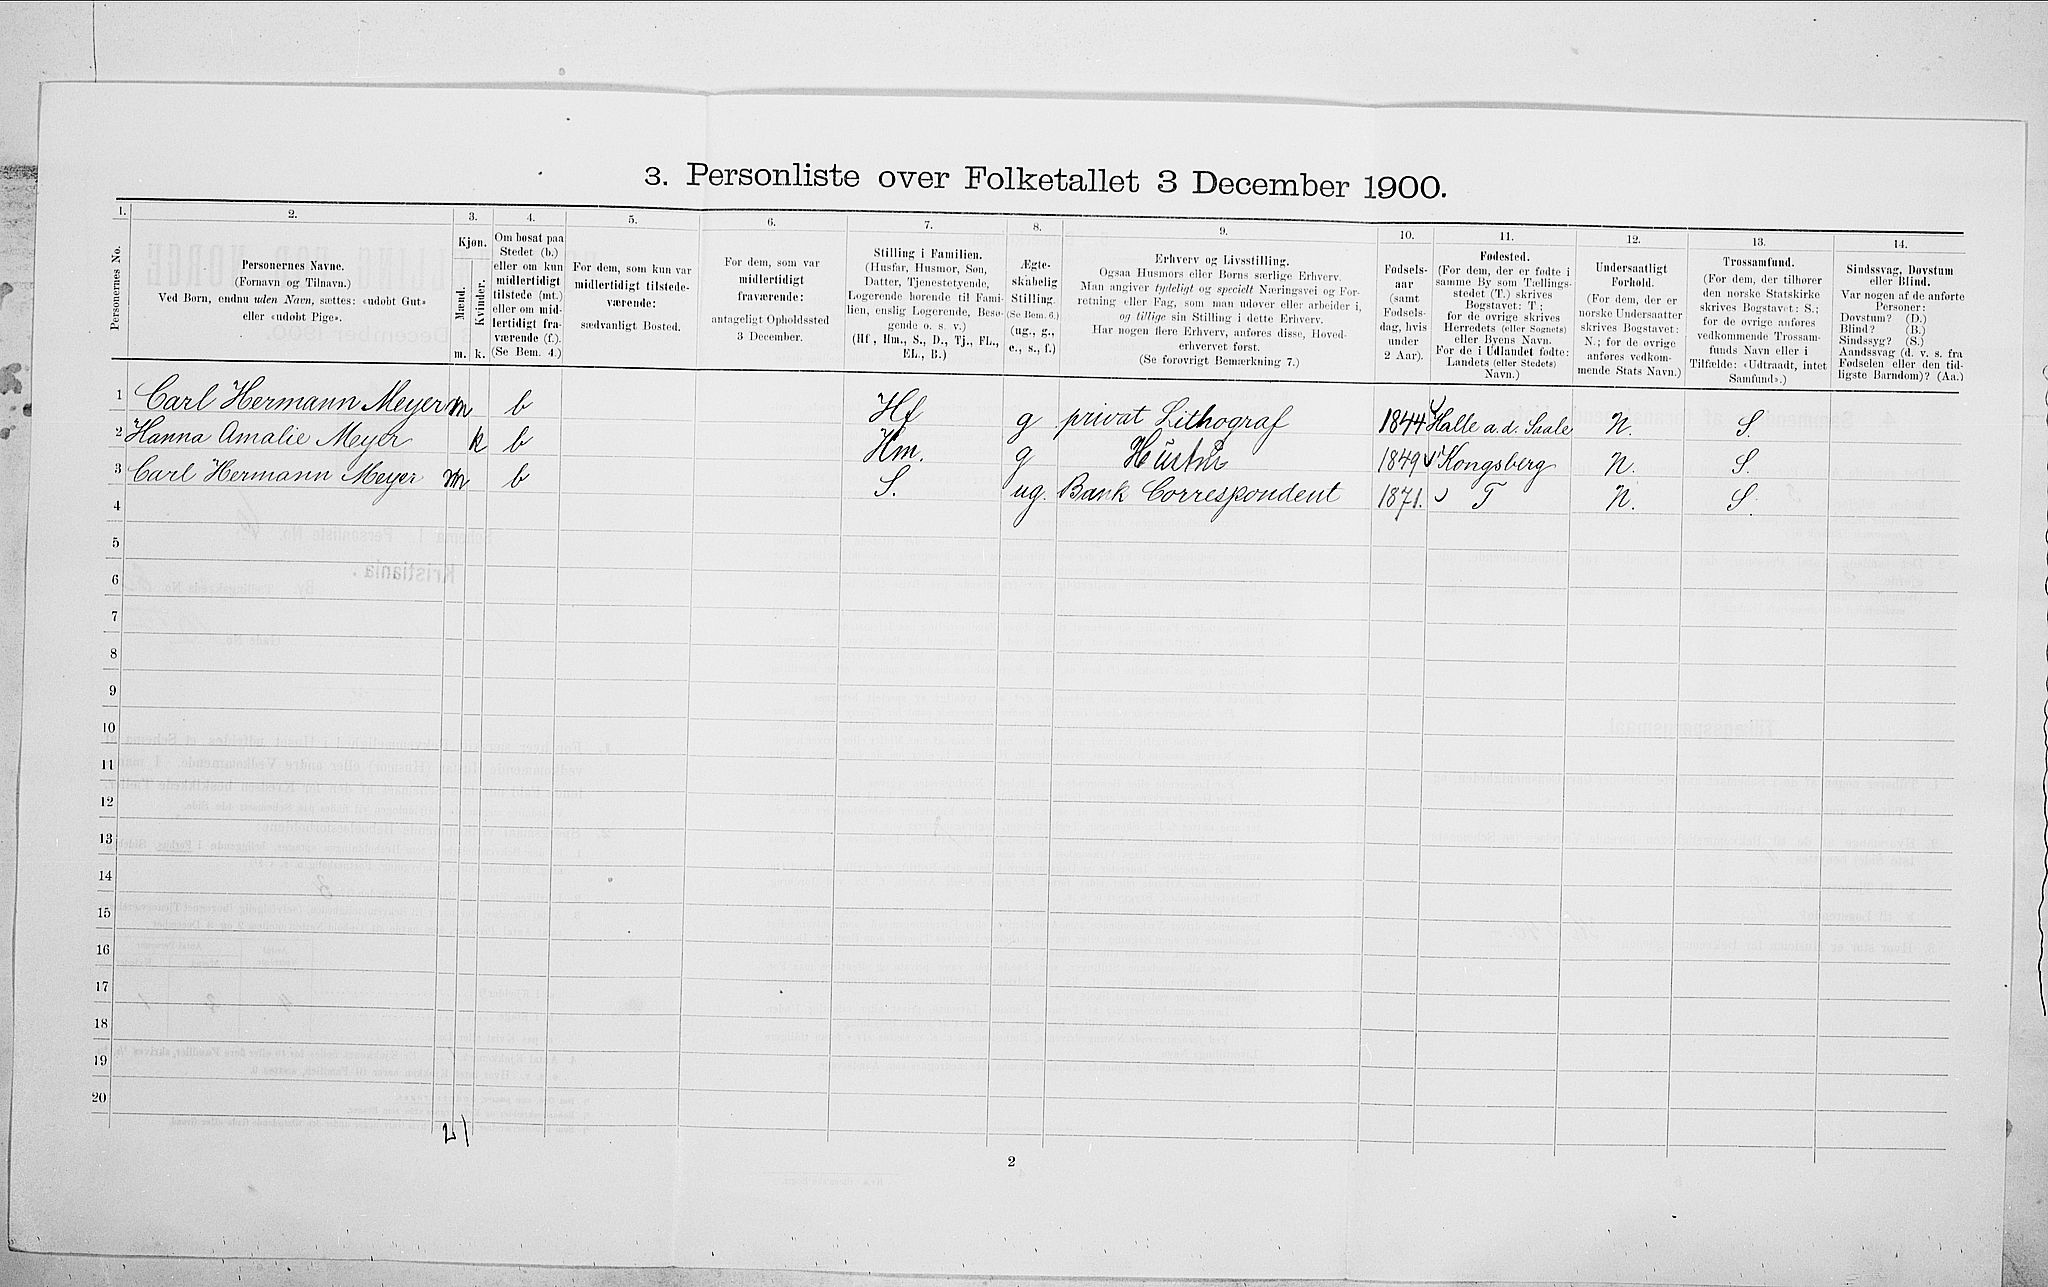 3. Personliste over Folketallet 3 December 1900.
1. 2. 3. 4. 5. 6. 7. 8. 9. 10. 11. 12. 13. 14.
Personernes No.
Personernes Navne.
(Fornavn og Tilnavn.)
Ved Børn, endnu uden Navn, sættes: «udøbt Gut»
eller «udøbt Pige».
Kjøn.
Mænd.
Kvinder.
m. k.
Om bosat paa
Stedet (b.)
eller om kun
midlertidigt
tilstede (mt.)
eller om mid-
lertidigt fra-
værende (f.)
(Se Bem. 4.)
For dem, som kun var
midlertidigt tilstede-
værende:
sædvanligt Bosted.
For dem, som var
midlertidigt
fraværende:
antageligt Opholdssted
3 December.
Stilling i Familien.
(Husfar, Husmor, Søn,
Datter, Tjenestetyende,
Logerende hørende til Fami-
lien, enslig Logerende, Besø-
gende o. s. v.)
(Hf, Hm., S., D., Tj., FL.,
EL., B.)
Ægte-
skabelig
Stilling.
(Se Bem. 6.)
(ug., g.,
e., s., f.)
Erhverv og Livsstilling.
Ogsaa Husmors eller Børns særlige Erhverv.
Man angiver tydeligt og specielt Næringsvei og For-
retning eller Fag, som man udøver eller arbeider i,
og tillige sin Stilling i dette Erhverv.
Har nogen flere Erhverv, anføres disse, Hoved-
erhvervet først.
(Se forøvrigt Bemærkning 7.)
Fødsels-
aar
(samt
Fødsels-
dag, hvis
under
2 Aar).
Fødested.
(For dem, der er fødte i
samme By som Tællings-
stedet (T.) skrives
Bogstavet: T;
for de øvrige skrives
Herredets (eller Sognets)
eller Byens Navn.
For de i Udlandet fødte:
Landets (eller Stedets)
Navn.)
Undersaatligt
Forhold.
(For dem, der er
norske Undersaatter
skrives Bogstavet:
N.; for de øvrige
anføres vedkom-
mende Stats Navn.)
Trossamfund.
(For dem, der tilhører
den norske Statskirke
skrives Bogstavet: S.;
for de øvrige anføres
vedkommende Trossam-
funds Navn eller i
Tilfælde: «Udtraadt, intet
Samfund».)
Sindssvag, Døvstum
eller Blind.
Var nogen af de anførte
Personer:
Døvstum? (D.)
Blind? (B.)
Sindssyg? (S.)
Aandssvag (d. v. s. fra
Fødselen eller den tid-
ligste Barndom)? (Aa.)
1 Carl Hermann Meyer m b Hf g privat Lithograf 1844 Halle a. d. Saale N. S.
2 Hanna Amalie Meyer k b Hm. g Hustru 1849 Kongsberg N. S.
3 Carl Hermann Meyer m b S. ug. Bank Correspondent 1871. T N. S.
4
5
6
7
8
9
10
11
12
13
14
15
16
17
18
19
20
2 1
2